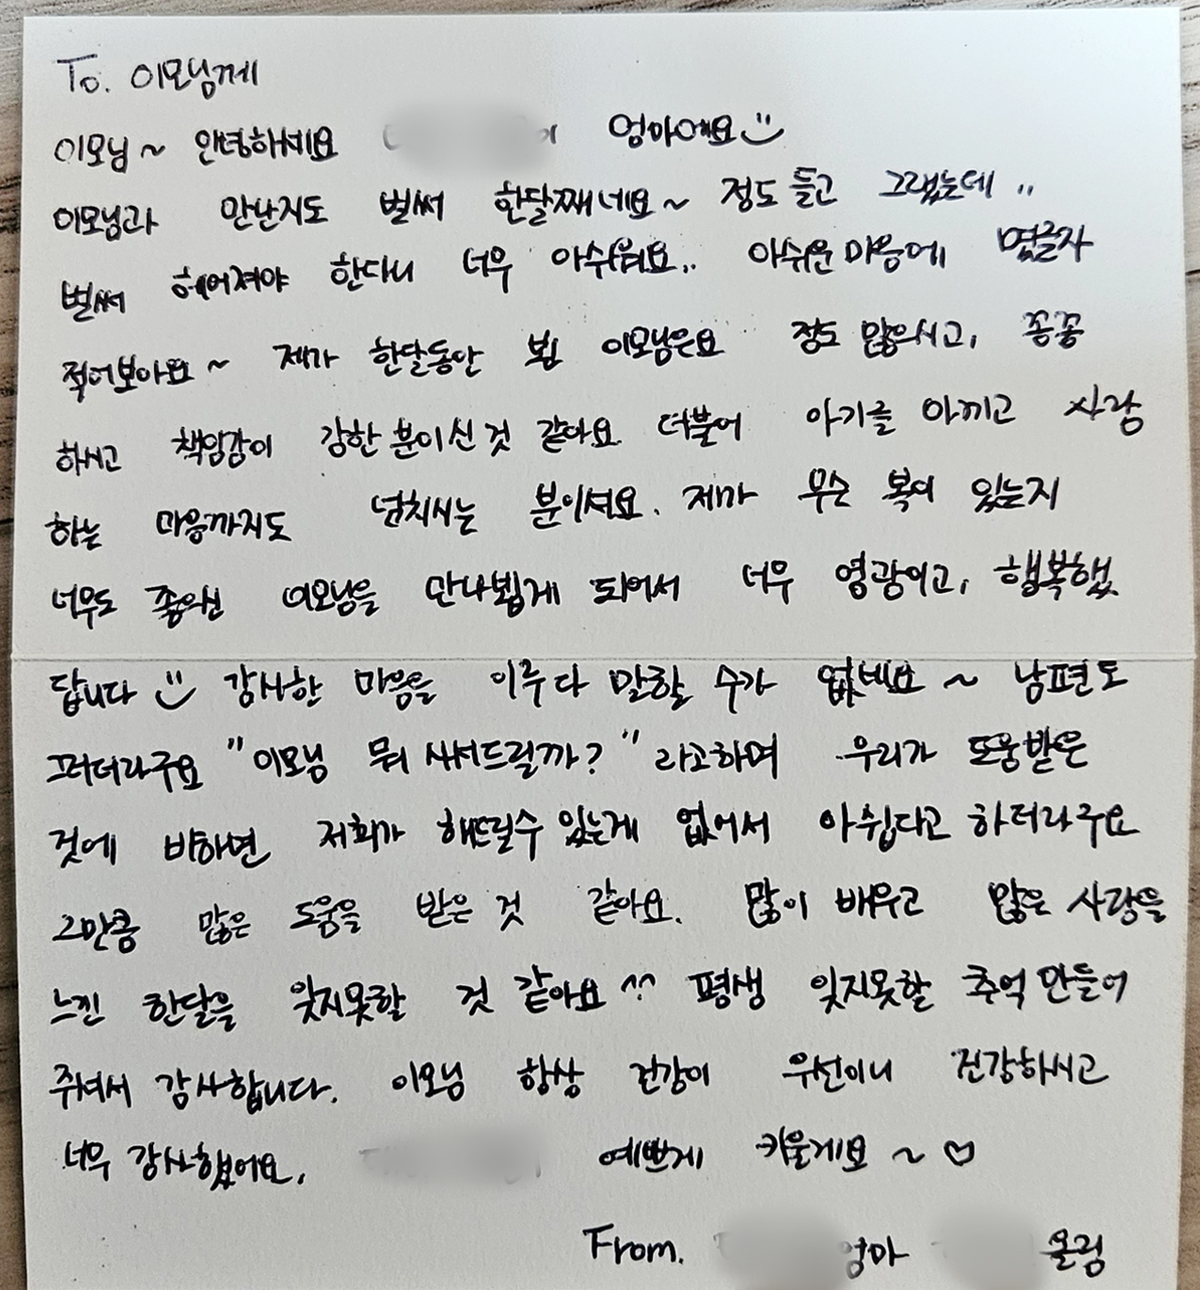 To. 이모님께
이모님~ 안녕하세요 이 엄마에요
이모님과 만난지도 벌써 한달째네요~ 정도 들고 그랬는데..
벌써 헤어져야 한다니 너무 아쉬워요.. 아쉬운 마음에 몇글자
적어보아요~ 제가 한달동안 뵌 이모님은요 정도 많으시고, 꼼꼼
하시고 책임감이 강한 분이신 것 같아요 더불어 아기를 아끼고 사랑
하는 마음까지도 넘치시는 분이셔요. 제가 무슨 복이 있는지
너무도 좋으신 이모님을 만나뵙게 되어서 너무 영광이고, 행복했
답니다 감사한 마음을 이루다 말할 수가 없네요~ 남편도
그러더라구요 "이모님 뭐 사서드릴까?" 라고하며 우리가 도움받은
것에 비하면 저희가 해드릴수 있는게 없어서 아쉽다고 하더라구요
그만큼 많은 도움을 받은 것 같아요. 많이 배우고 많은 사랑을
느낀 한달을 잊지못할 것 같아요^^ 평생 잊지못할 추억 만들어
주셔서 감사합니다. 이모님 항상 건강이 우선이니 건강하시고
너무 감사했어요. 예쁘게 키울게요~♡
From. 엄마 올림